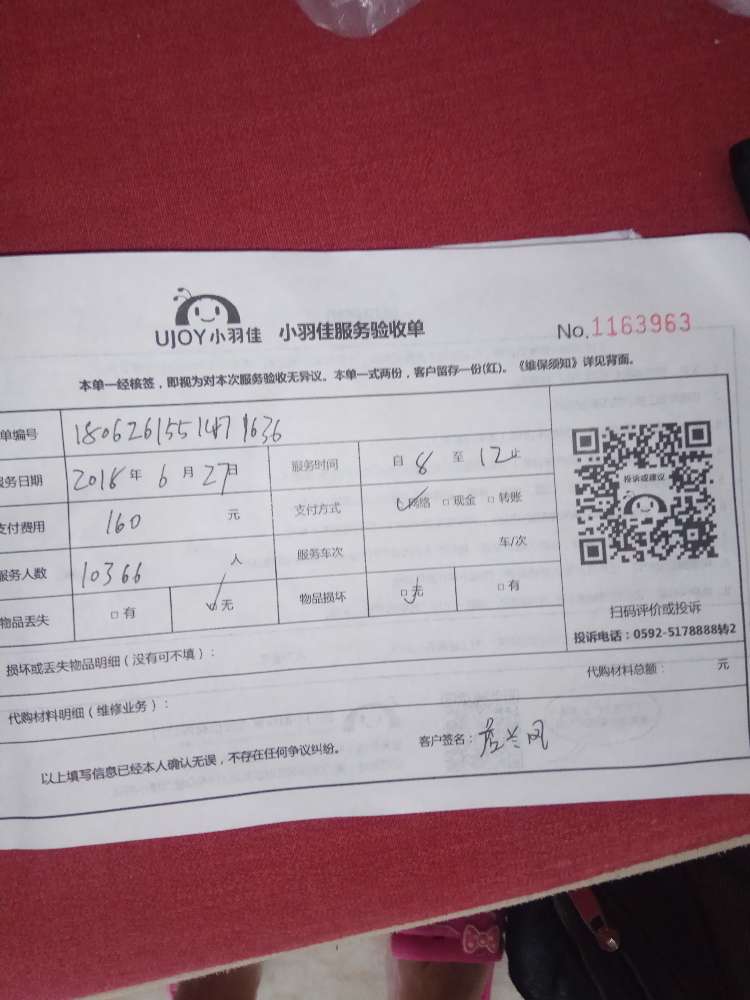 UJOY小羽佳 小羽佳服务验收单 No.1163963
本单一经核签，即视为对本次服务验收无异议。本单一式两份，客户留存一份(红)。《维保须知》详见背面。
单编号
服务日期 2018年6月27日 服务时间 自8至12止
支付费用 160元 支付方式 网络 □现金 □转账
服务人数 10366人 服务车次 车/次
物品丢失 □有 ✓无 物品损坏 □无 □有
投诉或建议
扫码评价或投诉
投诉电话：0592-5178888转2
损坏或丢失物品明细（没有可不填）：
代购材料总额： 元
代购材料明细（维修业务）：
以上填写信息已经本人确认无误，不存在任何争议纠纷。 客户签名：